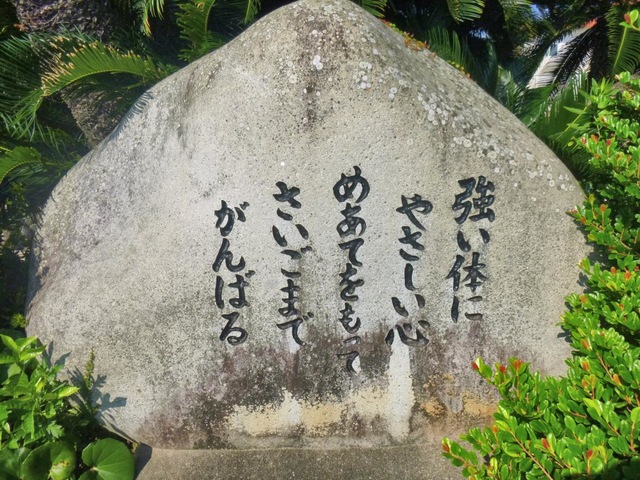 強い体に
やさしい心
めあてをもって
さいごまで
がんばる